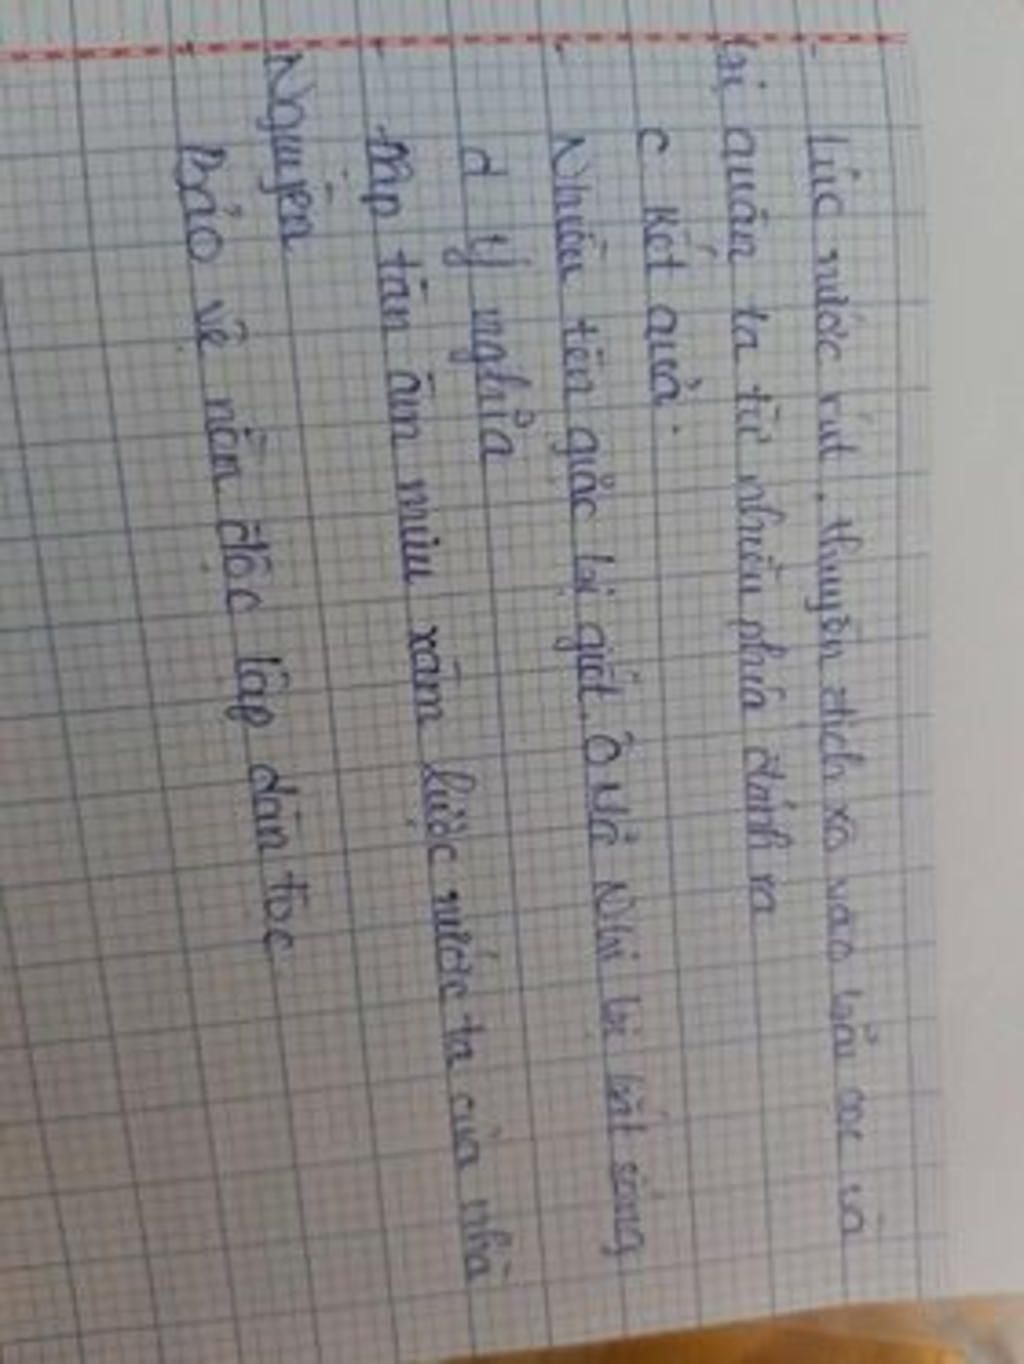 - Lúc nước rút, thuyền địch xô vào bãi cọc và
bị quân ta từ nhiều phía đánh ra
c Kết quả:
- Nhiều tên giặc bị giết. Ô Mã Nhi bị bắt sống
d Ý nghĩa
- Đập tan âm mưu xâm lược nước ta của nhà
Nguyên
- Bảo vệ nền độc lập dân tộc